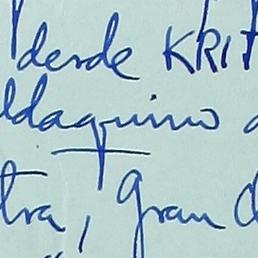 desde KRIT
ldaquino
tra, gran